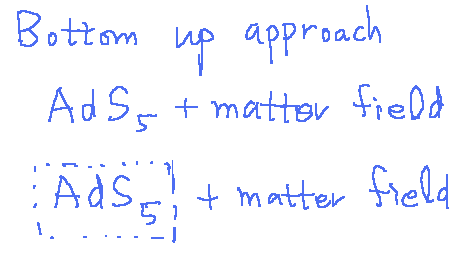 Bottom up approach
AdS₅ + matter field
AdS₅ + matter field